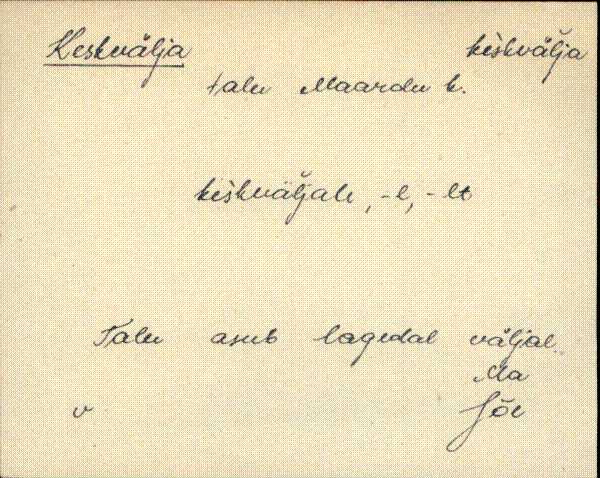 Keskvälja keskvälja
talu Maardu k.
keskväljale, -l, -lt
Talu asub lagedal väljal.
Ma
v Jõe